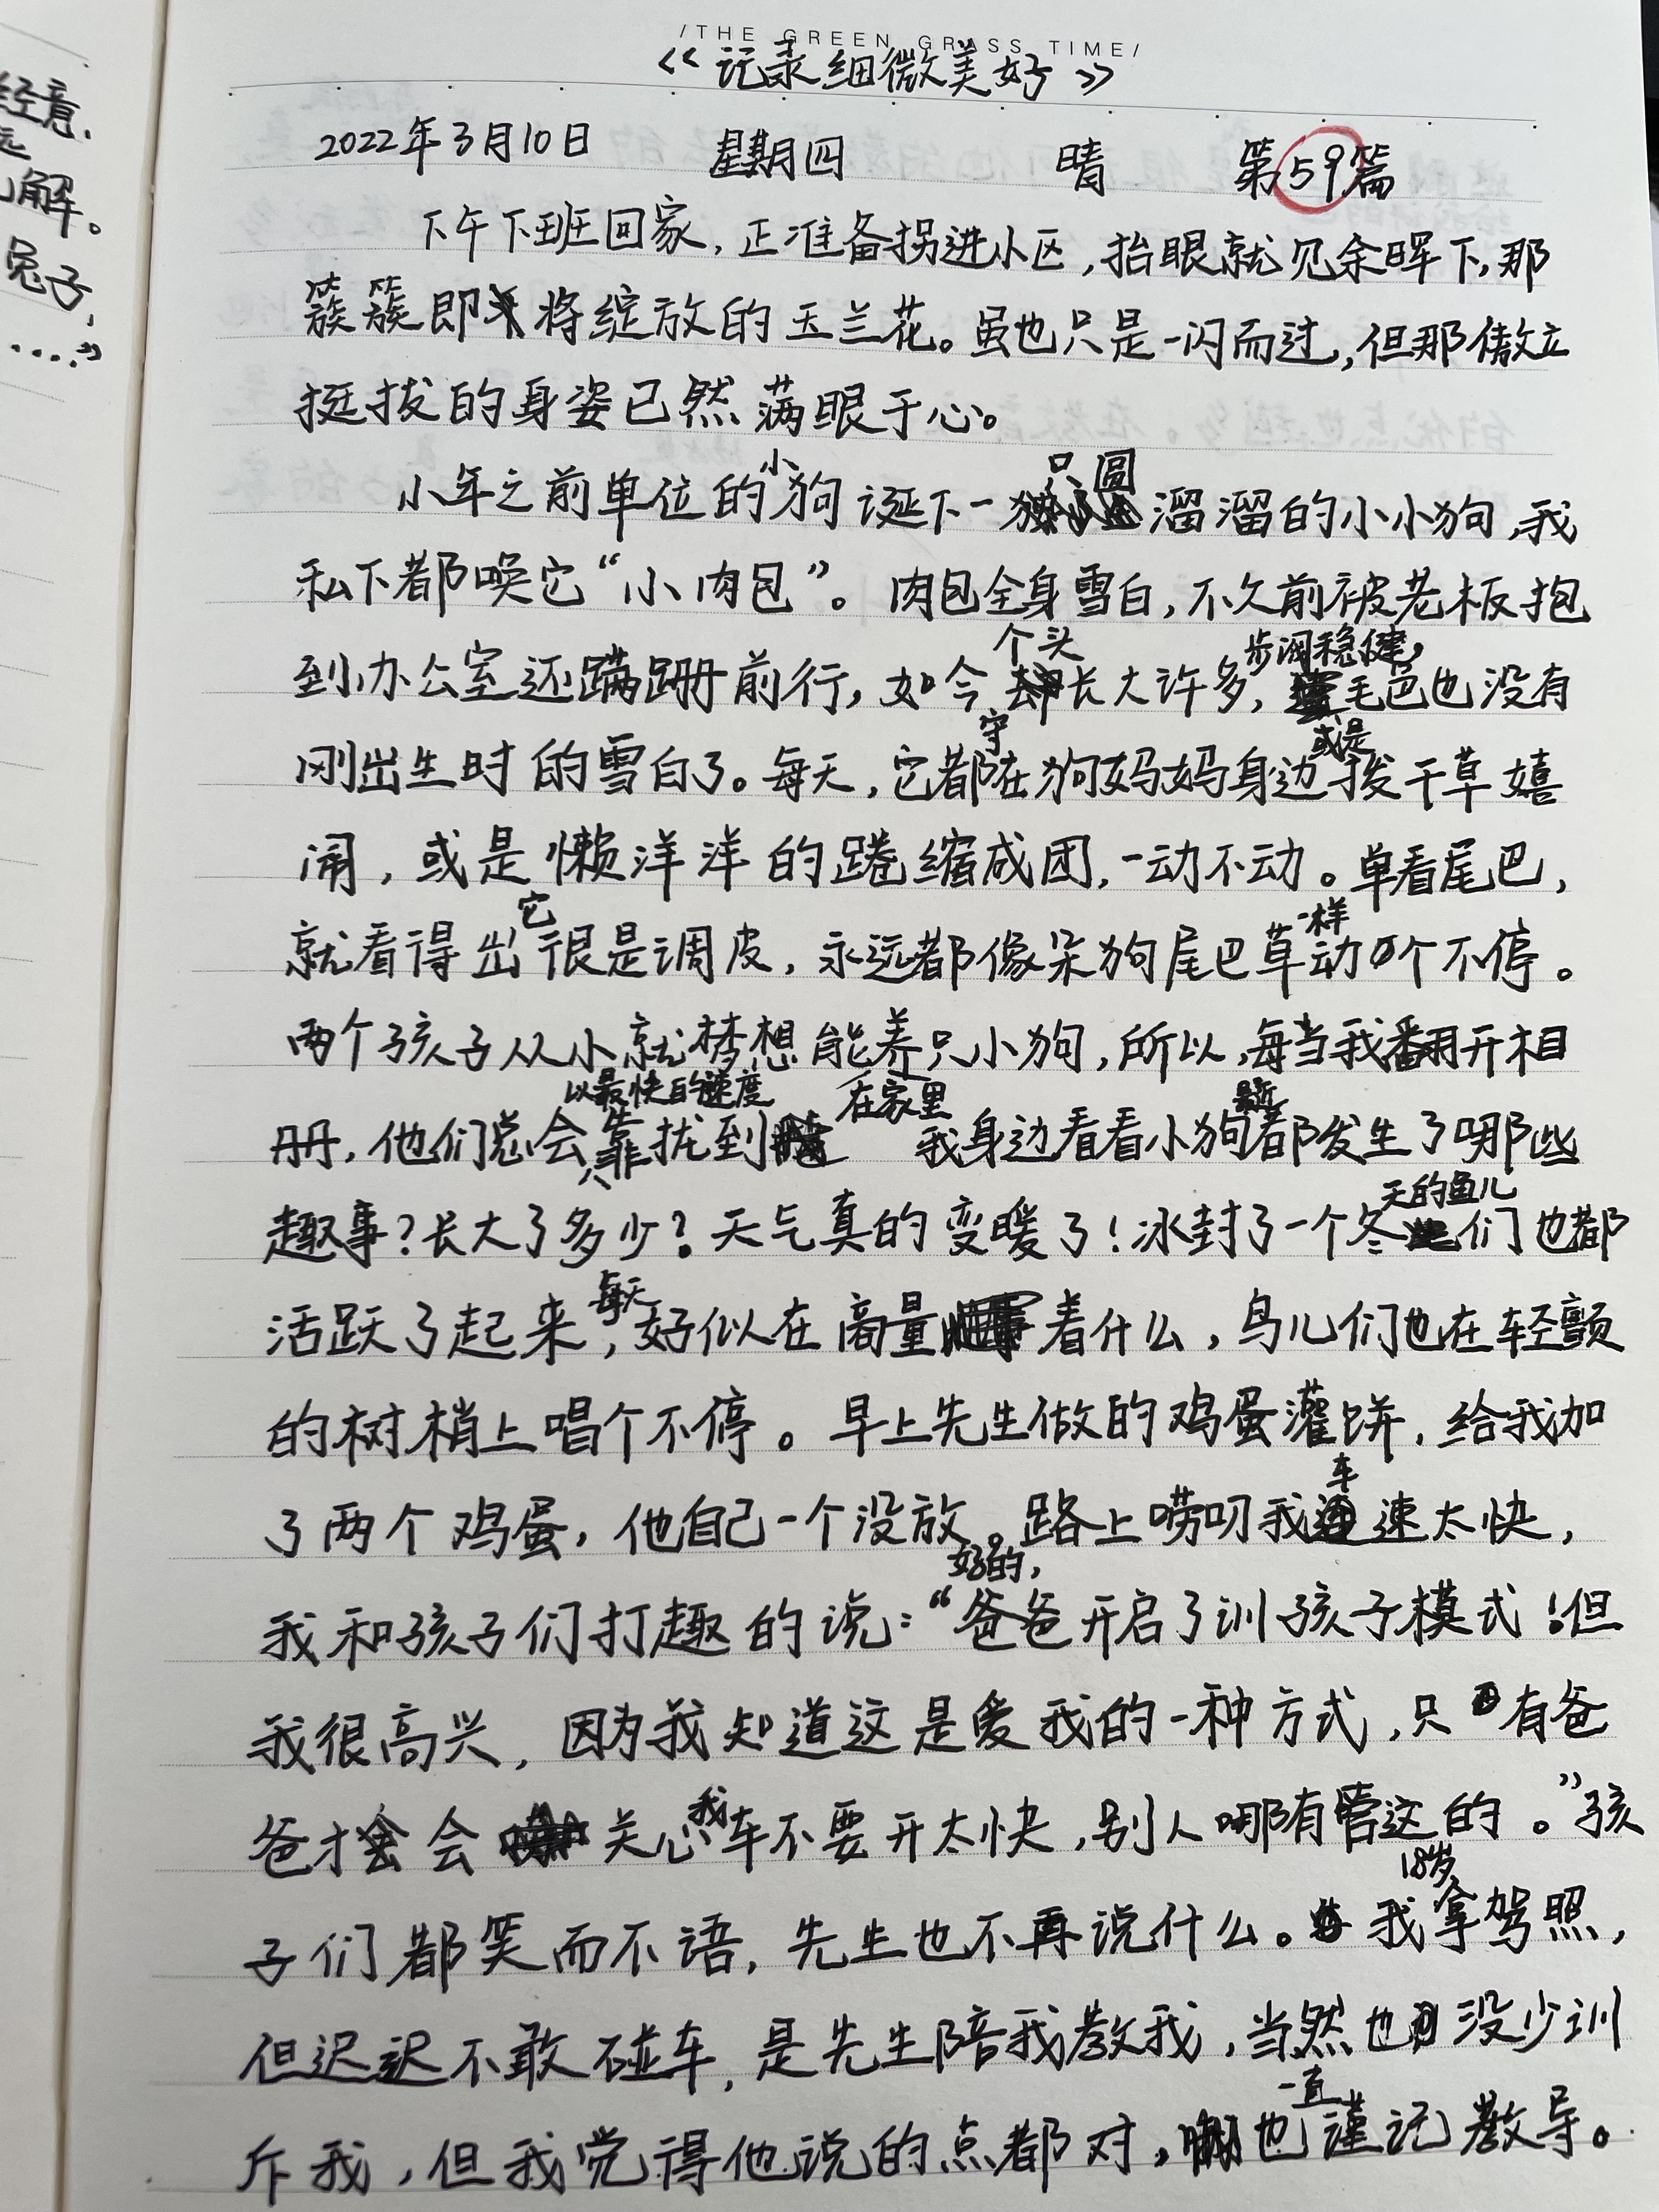 经意、
远
解。
兔子,
....”
/THE GREEN GRASS TIME/
《记录细微美好》
2022年3月10日 星期四 晴 第59篇
下午下班回家,正准备拐进小区,抬眼就见余晖下,那
簇簇即将绽放的玉兰花。虽也只是一闪而过,但那傲立
挺拔的身姿已然满眼于心。
小年之前单位的小狗诞下一只圆溜溜的小小狗,我
私下都唤它“小肉包”。肉包全身雪白,不久前被老板抱
到办公室还蹒跚前行,如今个头长大许多,步调稳健,毛色也没有
刚出生时的雪白了。每天,它都守在狗妈妈身边或是拨干草嬉
闹,或是懒洋洋的蜷缩成团,一动不动。单看尾巴,
就看得出它很是调皮,永远都像朵狗尾巴草一样动个不停。
两个孩子从小就梦想能养只小狗,所以,每当我翻开相
册,他们总会以最快的速度靠拢到在家里我身边看看小狗最近都发生了哪些
趣事?长大了多少?天气真的变暖了!冰封了一个冬天的鱼儿们也都
活跃了起来,每天好似在商量着什么,鸟儿们也在轻颤
的树梢上唱个不停。早上先生做的鸡蛋灌饼,给我加
了两个鸡蛋,他自己一个没放。路上唠叨我车速太快,
我和孩子们打趣的说:“好的,爸爸开启了训孩子模式!但
我很高兴,因为我知道这是爱我的一种方式,只有爸
爸才会会关心我车不要开太快,别人哪有管这的。”孩
子们都笑而不语,先生也不再说什么。我18岁拿驾照,
但迟迟不敢碰车,是先生陪我教我,当然也没少训
斥我,但我觉得他说的点都对,也一直谨记教导。